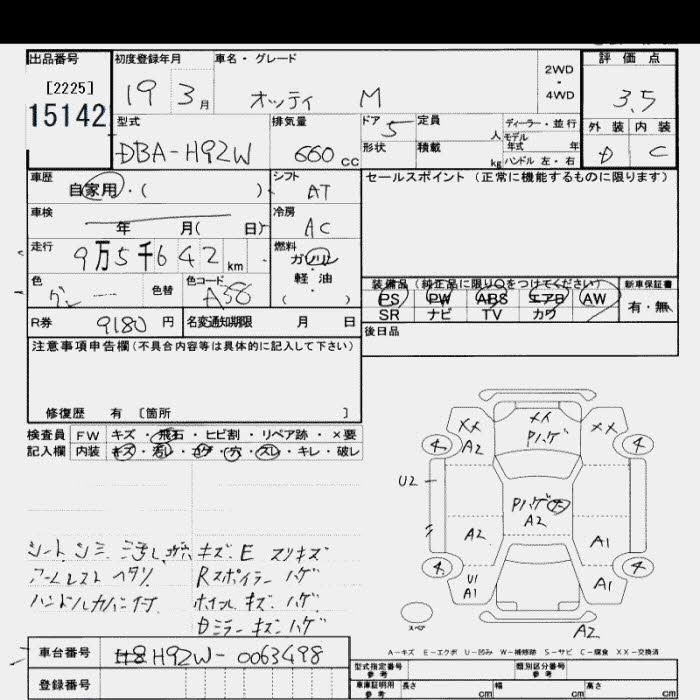 出品番号
[2225]
15142
初度登録年月
19 3月
車名・グレード
オッティ M
2WD
・
4WD
評価点
3.5
外装 内装
D C
型式
DBA-H92W
排気量
660 cc
ドア 5
形状
定員 人
積載 kg
ディーラー・並行
モデル
年式 年
ハンドル 左・右
車歴
自家用・( )
シフト
AT
車検
年 月( 日)
冷房
AC
走行
9万5千642 km
燃料
ガソリン
・
軽・油
( )
色
色替
色コード
A38
R券 9180 円
名変通知期限 月 日
セールスポイント (正常に機能するものに限ります)
装備品 (純正品に限り○をつけてください)
PS PW ABS エアB AW
SR ナビ TV カワ
新車保証書
有・無
後日品
注意事項申告欄(不具合内容等は具体的に記入して下さい)
修復歴 有 [箇所 ]
検査員
記入欄
FW キズ・飛石・ヒビ割・リペア跡・×要
内装 キズ・汚レ・コゲ・穴・スレ・キレ・破レ
シート、シミ
キズ、E スリキズ
アームレスト ヘタリ
Rスポイラー ハゲ
ホイール キズ、ハゲ
Dミラー キズ、ハゲ
XX A2
XX Pハゲ
XX
4 4
U2
Pハゲ
A2
A2 A1
4 4
U1 A1
A1
A2
スペア
A-キズ E-エクボ U-凹み W-補修跡 S-サビ C-腐食 XX-交換済
車台番号 H92W-0063498
登録番号
型式指定番号
参考
類別区分番号
参考
車庫証明用
参考
長さ cm
幅 cm
高さ cm